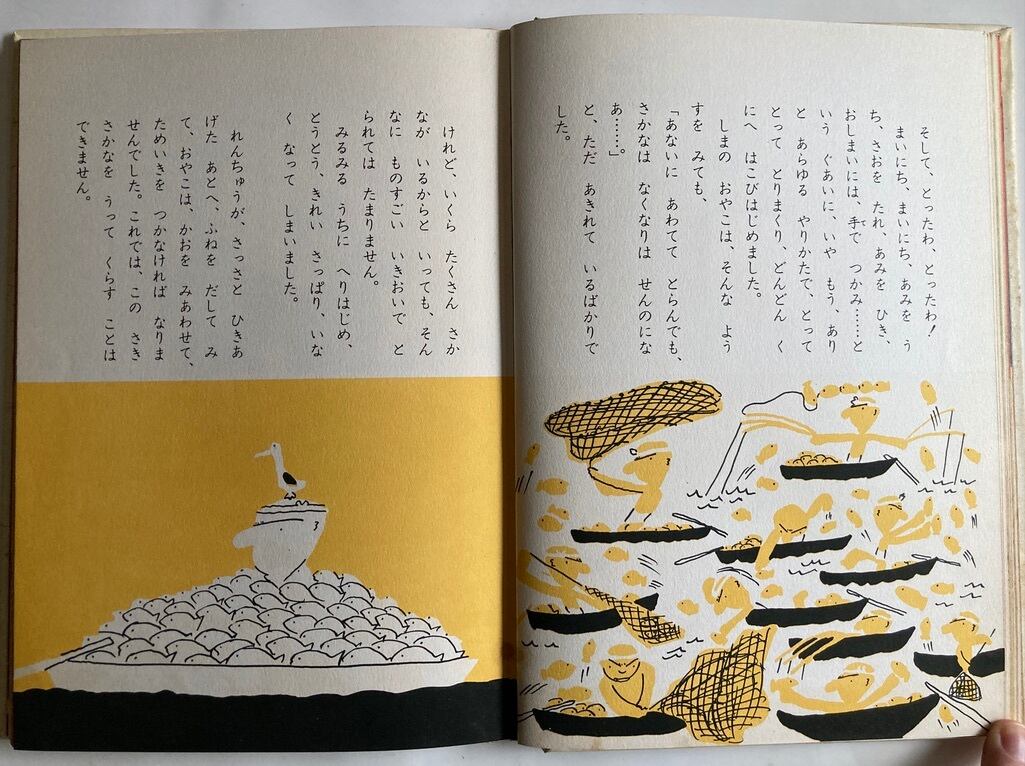 そして、とったわ、とったわ!
まいにち、まいにち、あみを う
ち、さおを たれ、あみを ひき、
おしまいには、手で つかみ……と
いう ぐあいに、いや もう、あり
と あらゆる やりかたで、とって
とって とりまくり、どんどん く
にへ はこびはじめました。
しまの おやこは、そんな よう
すを みても、
「あないに あわてて とらんでも、
さかなは なくなりは せんのにな
あ……。」
と、ただ あきれて いるばかりで
した。
けれど、いくら たくさん さか
なが いるからと いっても、そん
なに ものすごい いきおいで と
られては たまりません。
みるみる うちに へりはじめ、
とうとう、きれい さっぱり、いな
く なって しまいました。
れんちゅうが、さっさと ひきあ
げた あとへ、ふねを だして み
て、おやこは、かおを みあわせて、
ためいきを つかなければ なりま
せんでした。これでは、この さき
さかなを うって くらす ことは
できません。